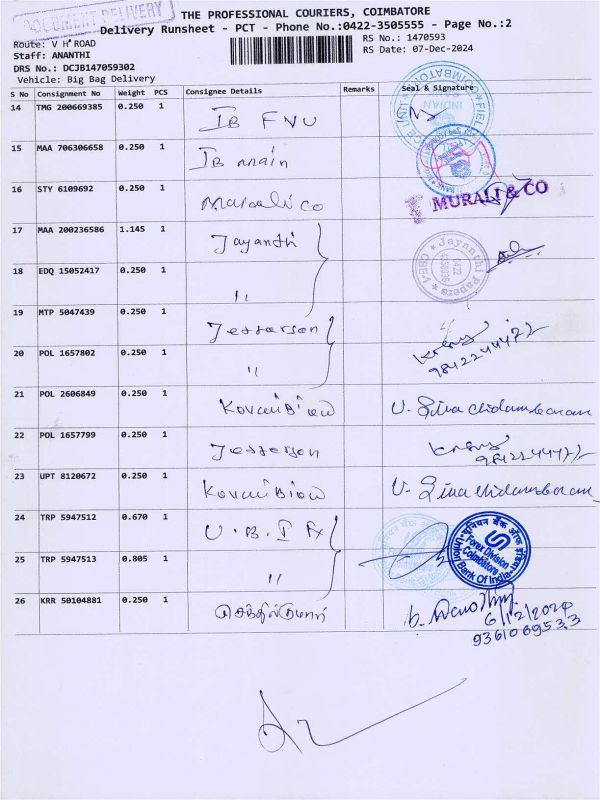 DOCUMENT DELIVERY
THE PROFESSIONAL COURIERS, COIMBATORE
Delivery Runsheet - PCT - Phone No.:0422-3505555 - Page No.:2
Route: V H ROAD
RS No.: 1470593
Staff: ANANTHI
RS Date: 07-Dec-2024
DRS No.: DCJB147059302
Vehicle: Big Bag Delivery
S No Consignment No Weight PCS Consignee Details Remarks Seal & Signature
14 TMG 200669385 0.250 1 IB FNU
15 MAA 706306658 0.250 1 IB main
16 STY 6109692 0.250 1 Muraali co MURALI & CO
17 MAA 200236586 1.145 1 Jayanthi Jayanthi Papers
18 EDQ 15052417 0.250 1 "
19 MTP 5047439 0.250 1 Jesserson
20 POL 1657802 0.250 1 " 9842244472
21 POL 2606849 0.250 1 U. Siva Chidambaram
22 POL 1657799 0.250 1 Jesserson
23 UPT 8120672 0.250 1 U. Siva Chidambaram
24 TRP 5947512 0.670 1 U.B.I Fx यूनियन बैंक ऑफ इंडिया Forex Division Coimbatore Union Bank Of India
25 TRP 5947513 0.805 1 "
26 KRR 50104881 0.250 1 செந்தில்குமார்
6/12/2024
9361069533